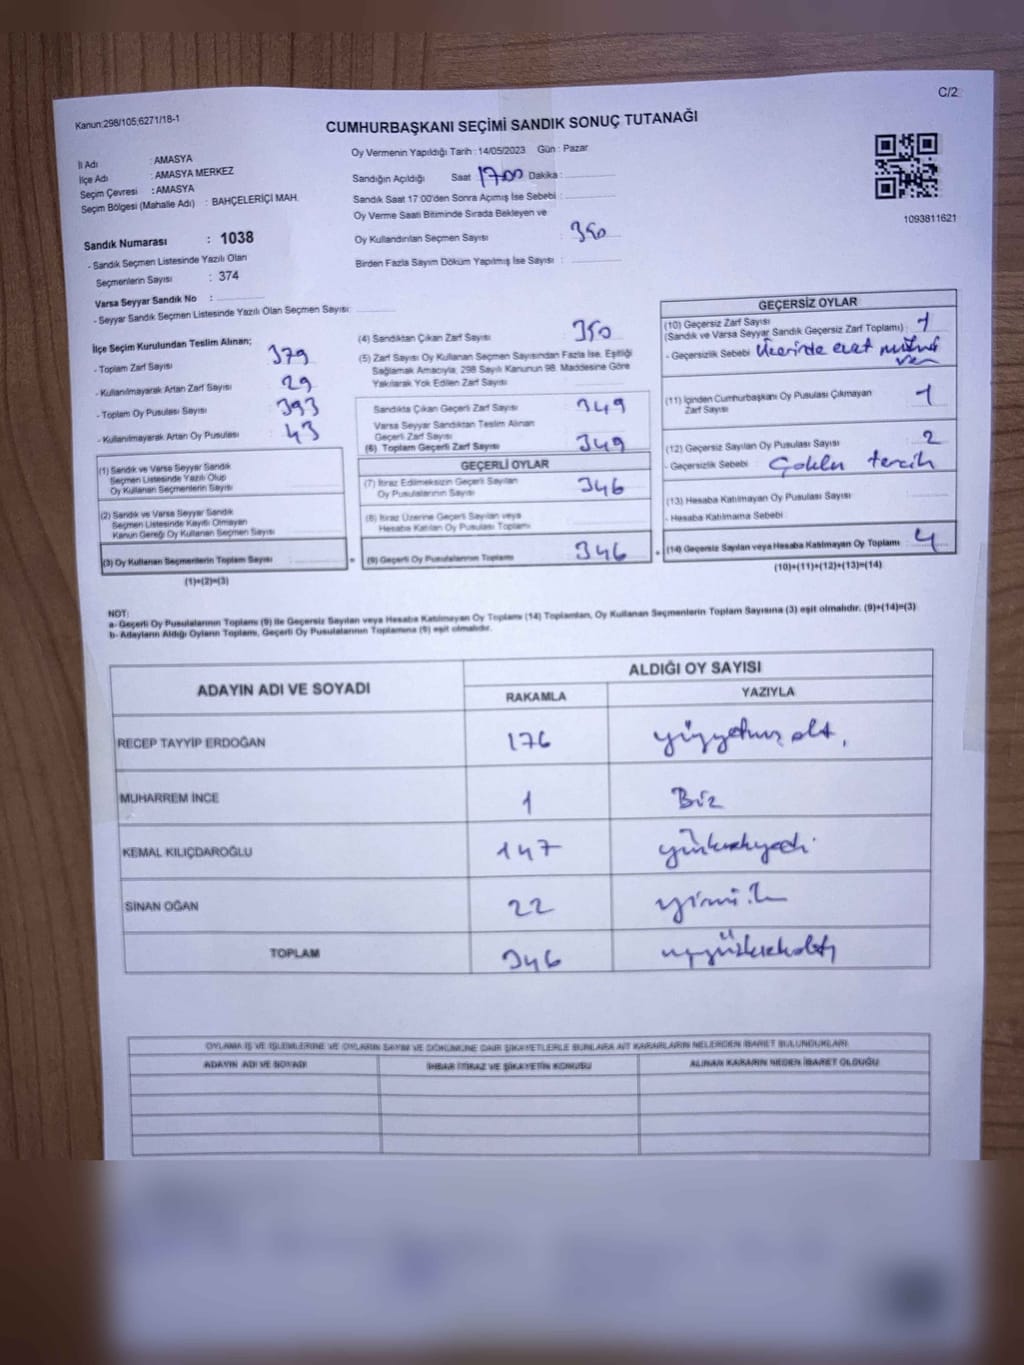 C/2
Kanun:298/105;6271/18-1
CUMHURBAŞKANI SEÇİMİ SANDIK SONUÇ TUTANAĞI
İl Adı : AMASYA
İlçe Adı : AMASYA MERKEZ
Seçim Çevresi : AMASYA
Seçim Bölgesi (Mahalle Adı) : BAHÇELERİÇİ MAH.
Oy Vermenin Yapıldığı Tarih : 14/05/2023 Gün : Pazar
Sandığın Açıldığı Saat 17:00 Dakika :
Sandık Saat 17:00'den Sonra Açımış İse Sebebi :
Oy Verme Saati Bitiminde Sırada Bekleyen ve
Oy Kullandırılan Seçmen Sayısı : 350
Birden Fazla Sayım Döküm Yapılmış İse Sayısı :
1093811621
Sandık Numarası : 1038
- Sandık Seçmen Listesinde Yazılı Olan
Seçmenlerin Sayısı : 374
Varsa Seyyar Sandık No :
- Seyyar Sandık Seçmen Listesinde Yazılı Olan Seçmen Sayısı:
İlçe Seçim Kurulundan Teslim Alınan;
- Toplam Zarf Sayısı 379
- Kullanılmayarak Artan Zarf Sayısı 29
- Toplam Oy Pusulası Sayısı 393
- Kullanılmayarak Artan Oy Pusulası 43
(1) Sandık ve Varsa Seyyar Sandık
Seçmen Listesinde Yazılı Olup
Oy Kullanan Seçmenlerin Sayısı
(2) Sandık ve Varsa Seyyar Sandık
Seçmen Listesinde Kayıtlı Olmayan
Kanun Gereği Oy Kullanan Seçmen Sayısı
(3) Oy Kullanan Seçmenlerin Toplam Sayısı
(1)+(2)=(3)
(4) Sandıktan Çıkan Zarf Sayısı : 350
(5) Zarf Sayısı Oy Kullanan Seçmen Sayısından Fazla İse, Eşitliği
Sağlamak Amacıyla, 298 Sayılı Kanunun 98. Maddesine Göre
Yakılarak Yok Edilen Zarf Sayısı
Sandıkta Çıkan Geçerli Zarf Sayısı : 349
Varsa Seyyar Sandıktan Teslim Alınan
Geçerli Zarf Sayısı
(6) Toplam Geçerli Zarf Sayısı : 349
GEÇERLİ OYLAR
(7) İtiraz Edilmeksizin Geçerli Sayılan
Oy Pusulalarının Sayısı : 346
(8) İtiraz Üzerine Geçerli Sayılan veya
Hesaba Katılan Oy Pusulası Toplamı
(9) Geçerli Oy Pusulalarının Toplamı : 346
GEÇERSİZ OYLAR
(10) Geçersiz Zarf Sayısı
(Sandık ve Varsa Seyyar Sandık Geçersiz Zarf Toplamı) : 1
- Geçersizlik Sebebi : Üzerinde evet mührü
var
(11) İçinden Cumhurbaşkanı Oy Pusulası Çıkmayan
Zarf Sayısı : 1
(12) Geçersiz Sayılan Oy Pusulası Sayısı : 2
- Geçersizlik Sebebi : Çoklu tercih
(13) Hesaba Katılmayan Oy Pusulası Sayısı
- Hesaba Katılmama Sebebi :
(14) Geçersiz Sayılan veya Hesaba Katılmayan Oy Toplamı : 4
(10)+(11)+(12)+(13)=(14)
NOT:
a- Geçerli Oy Pusulalarının Toplamı (9) ile Geçersiz Sayılan veya Hesaba Katılmayan Oy Toplamı (14) Toplamları, Oy Kullanan Seçmenlerin Toplam Sayısına (3) eşit olmalıdır. (9)+(14)=(3)
b- Adayların Aldığı Oyların Toplamı, Geçerli Oy Pusulalarının Toplamına (9) eşit olmalıdır.
ADAYIN ADI VE SOYADI ALDIĞI OY SAYISI
RAKAMLA YAZIYLA
RECEP TAYYİP ERDOĞAN 176 yüzyetmiş altı
MUHARREM İNCE 1 Bir
KEMAL KILIÇDAROĞLU 147 yüzkırkyedi
SİNAN OĞAN 22 yirmi iki
TOPLAM 346 üçyüzkırkaltı
OYLAMA İŞ VE İŞLEMLERİNE VE OYLARIN SAYIM VE DÖKÜMÜNE DAİR ŞİKAYETLERLE BUNLARA AİT KARARLARIN NELERDEN İBARET BULUNDUKLARI
ADAYIN ADI VE SOYADI İHBAR İTİRAZ VE ŞİKAYETİN KONUSU ALINAN KARARIN NEDEN İBARET OLDUĞU